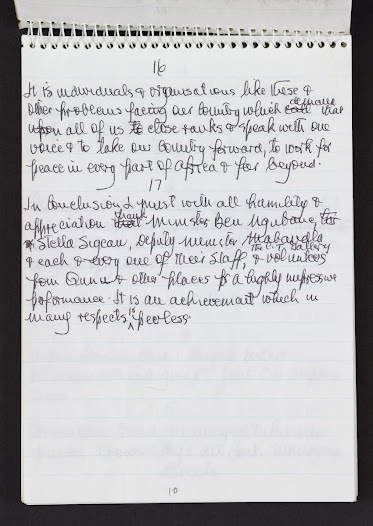 16
It is individuals & organisations like these &
other problems facing our country which call demand that
upon all of us to close ranks & speak with one
voice & to take our country forward, to work for
peace in every part of Africa & far beyond.
17
In conclusion I must with all humility &
appreciation thank Minister Ben Ngubane,
Stella Sigcau, Deputy Minister Mabandla
& each & every one of their staff, & volunteers
from & other places for a highly impressive
performance. It is an achievement which in
many respects is peerless.
10